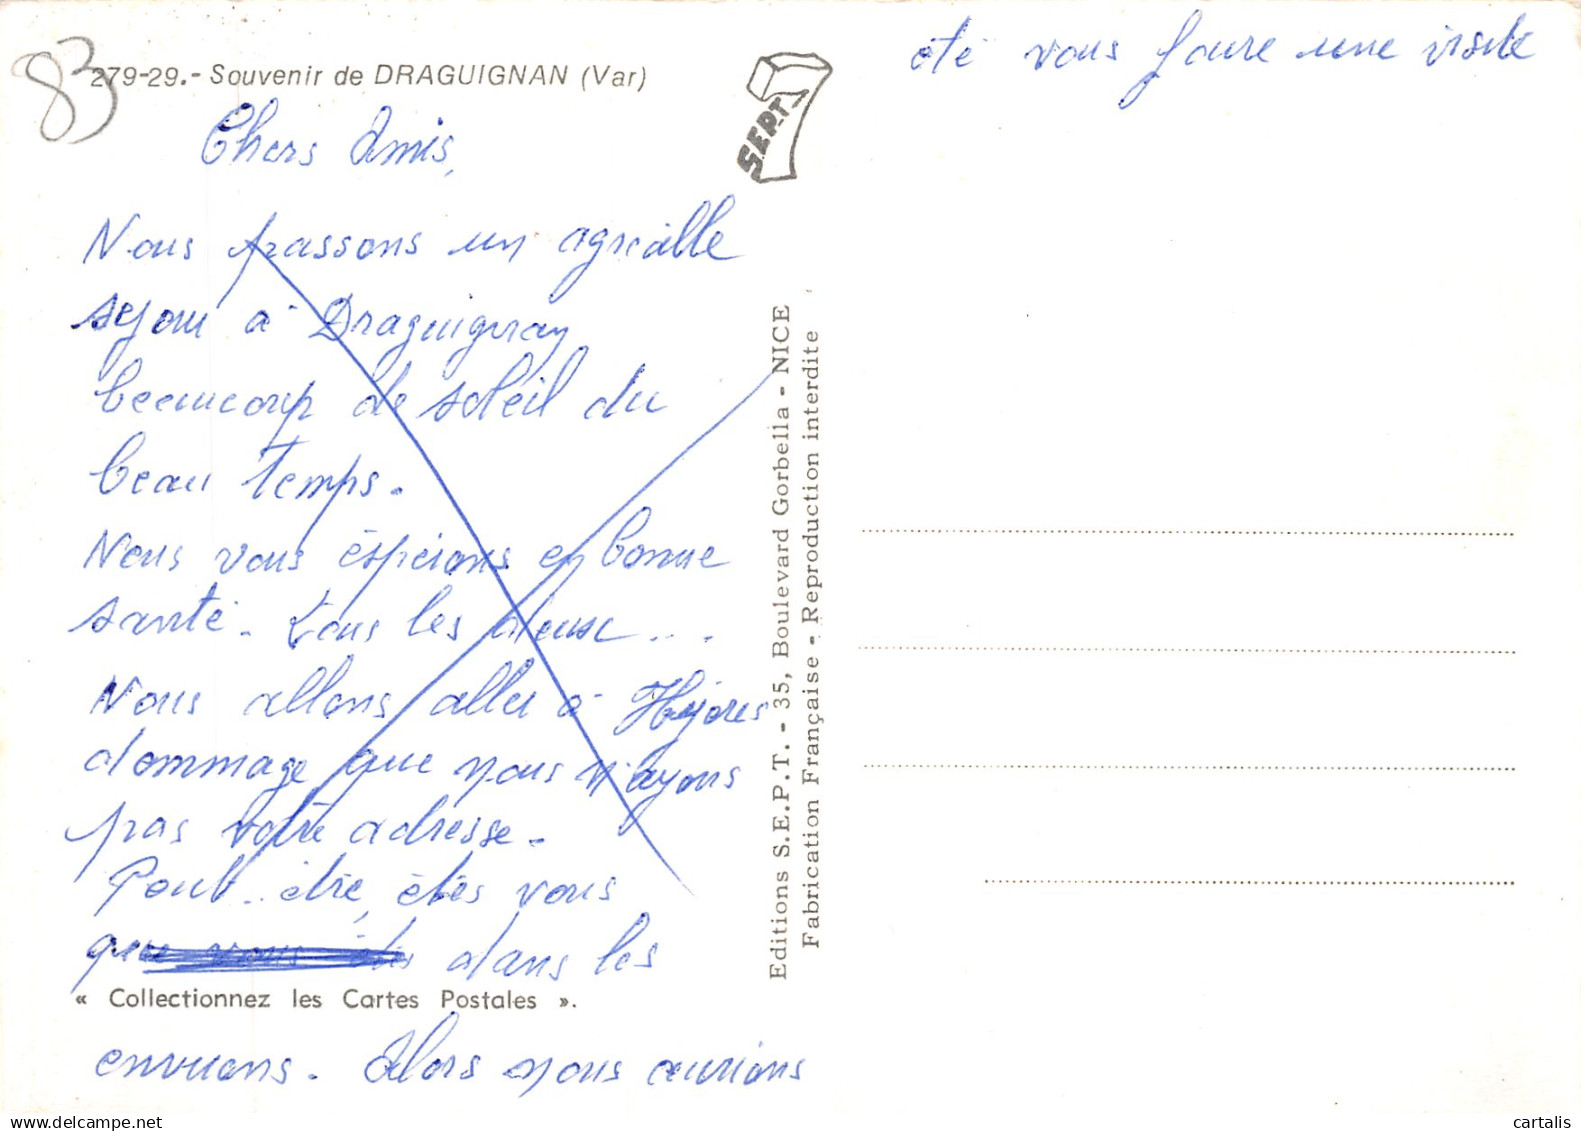 83
279-29.- Souvenir de DRAGUIGNAN (Var)
SEPT
Chers Amis,
Nous passons un agréable
sejour à Draguignan
beaucoup de soleil du
beau temps.
Nous vous éspérons en bonne
santé. Tous les deux...
Nous allons aller à Hyères
dommage que nous n'ayons
pas votre adresse.
Peut-être, êtes vous
que vous êtes dans les
« Collectionnez les Cartes Postales ».
environs. Alors nous aurions
été vous faire une visite
Editions S.E.P.T. - 35, Boulevard Gorbella - NICE
Fabrication Française - Reproduction interdite
cartalis